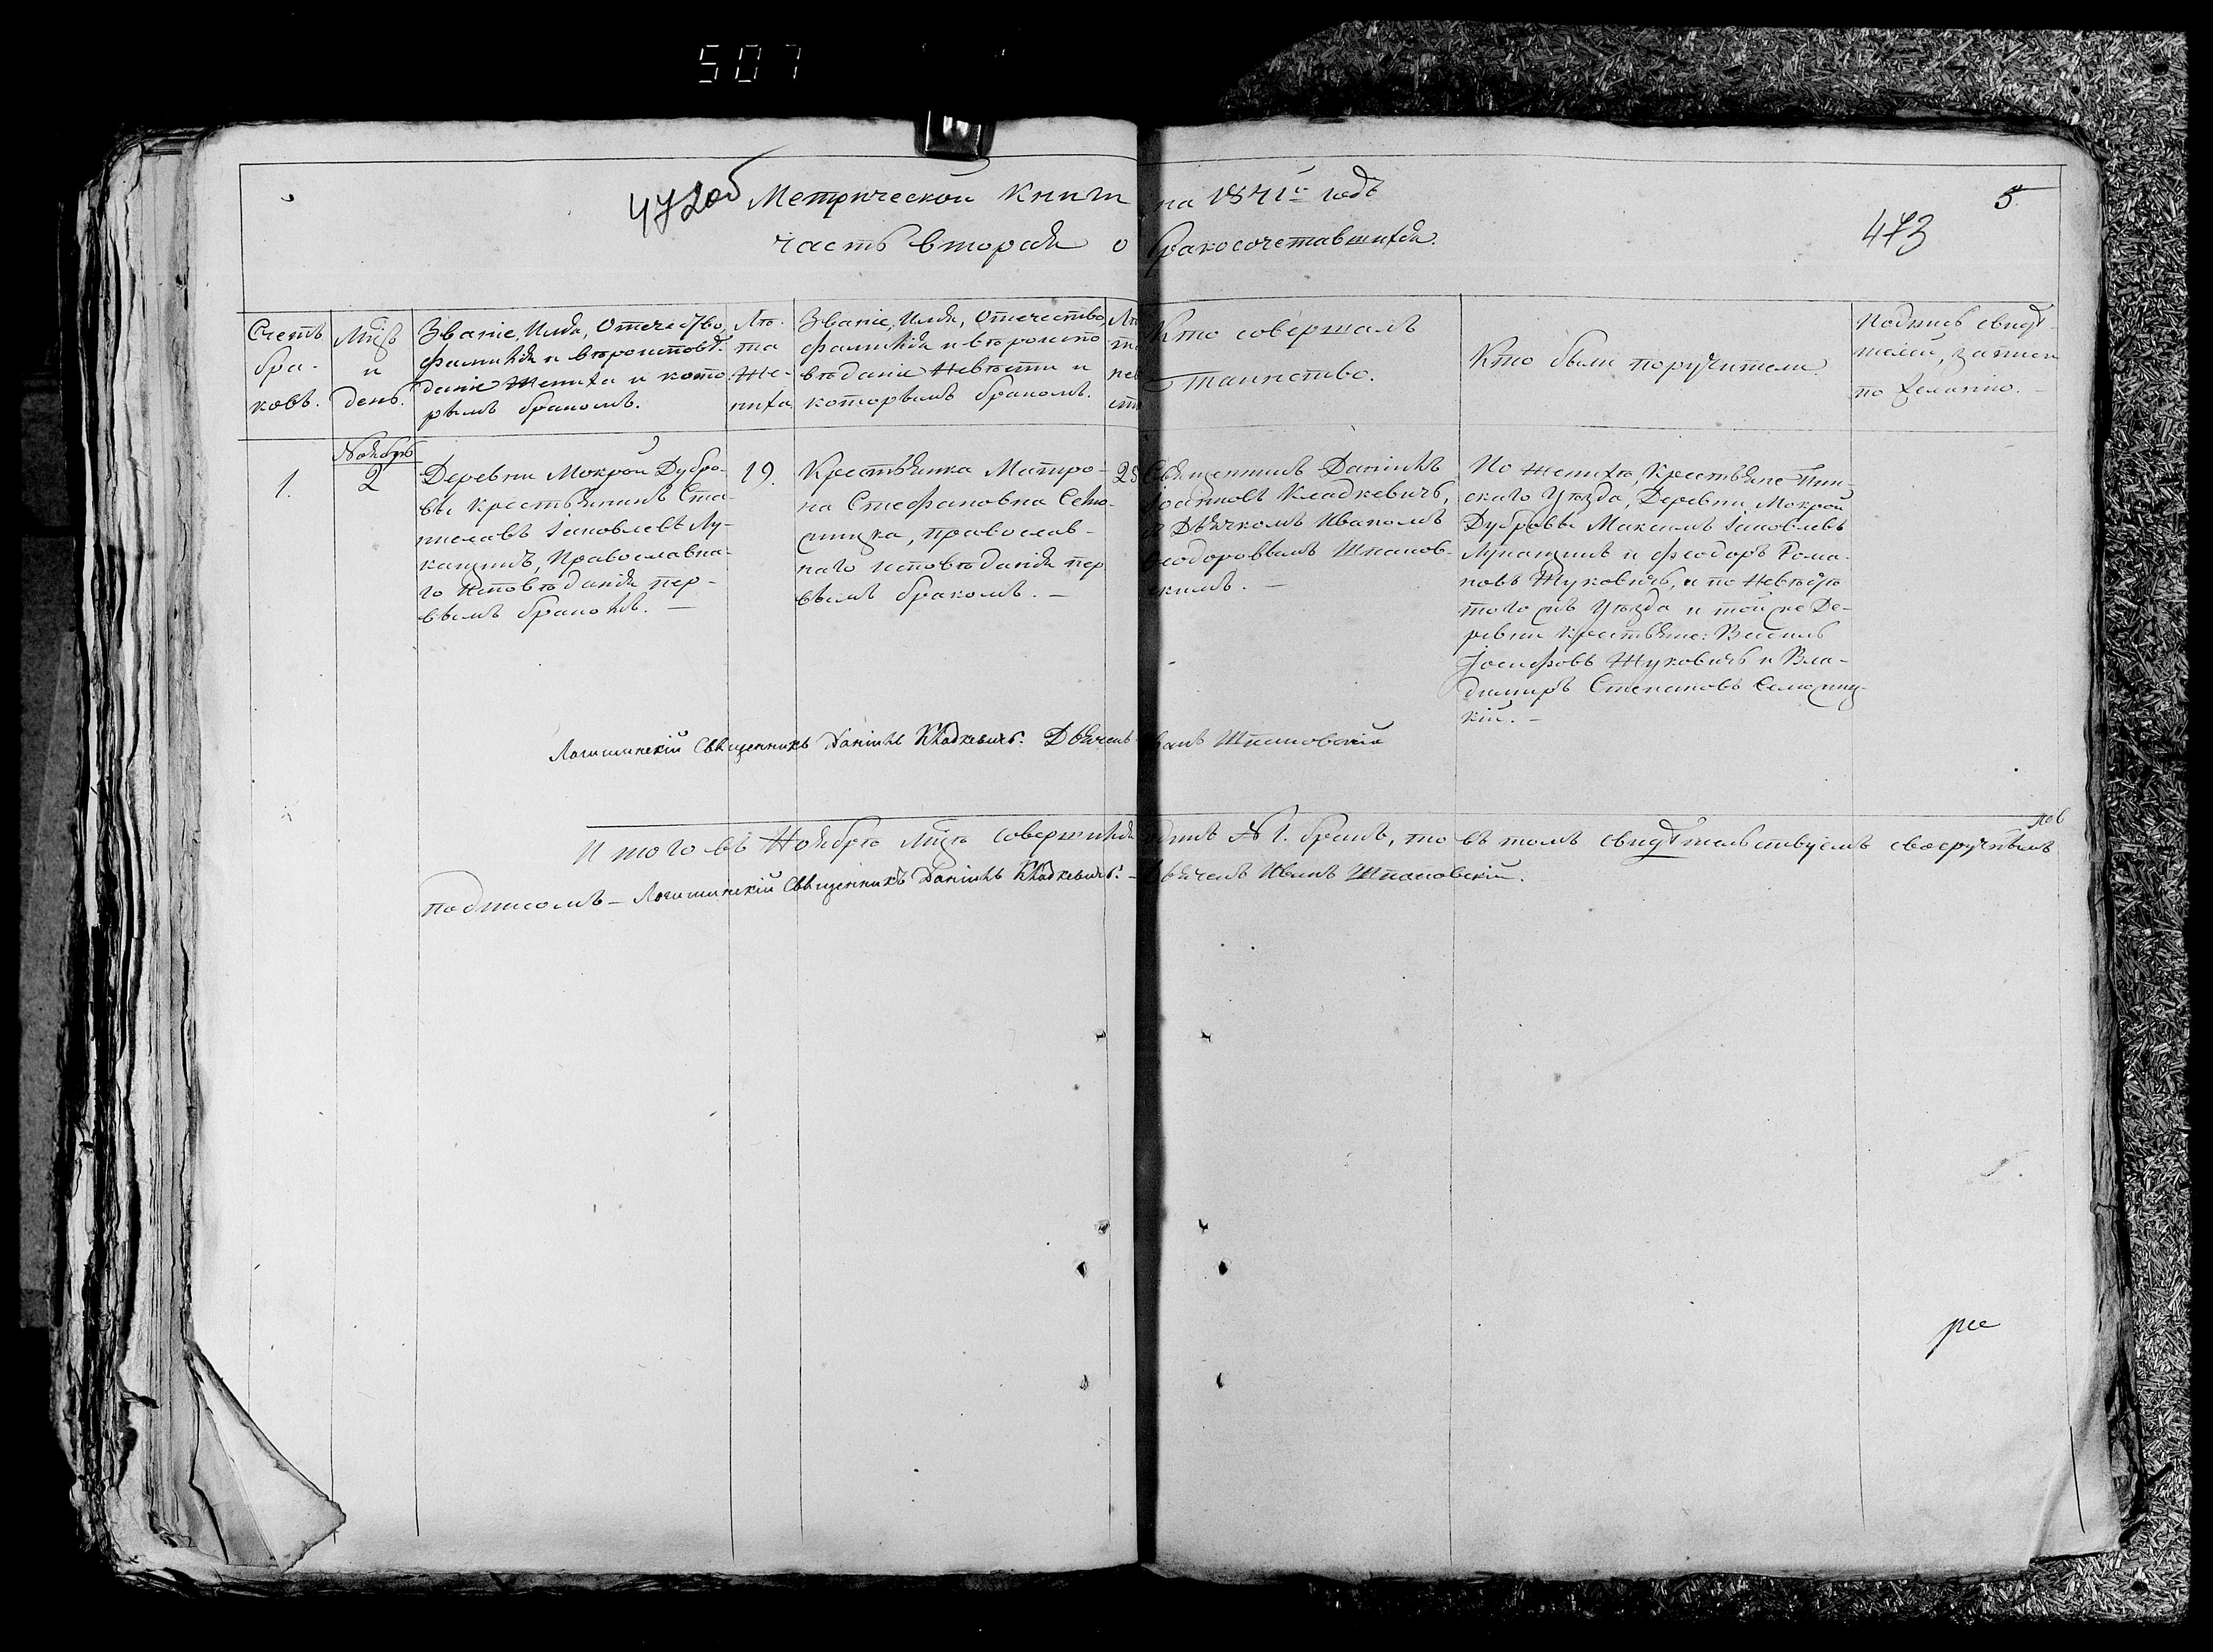 507
472об Метрической Книги на 1841го годъ 5
часть вторая о бракосочетавшихся. 473
Счетъ бра- ковъ.
Мцъ и день.
Званіе, Имя, Отечество,
фамилія и вѣроисповѣ-
даніе Жениха и кото-
рымъ бракомъ.
Лѣ-
та
Же-
ниха
Званіе, Имя, Отечество,
фамилія и вѣроиспо
вѣданіе Невѣсты и
которымъ бракомъ.
Лѣ
та
нев
сты
Кто совершалъ
Таинство.
Кто были поручители.
Подпись свидѣ-
телей, записи
по желанію.
1.
Ноябрь
2
Деревни Мокрой Дубро-
вы крестьянинъ Ста-
ниславъ Іаковлевъ Лу-
кашикъ, Православна-
го Исповѣданія пер-
вымъ бракомъ. —
19.
Крестьянка Матро-
на Стефановна
православ-
наго исповѣданія пер
вымъ бракомъ. —
25
Священникъ Даніилъ
Іоанновъ Кладкевичъ,
съ Дьячкомъ Иваномъ
Феодоровымъ Шпанов-
скимъ. —
По женихѣ, Крестьяне Пин-
скаго Уѣзда, Деревни Мокрой
Дубровы Максимъ Іаковлевъ
Лукашикъ и Феодоръ Рома-
новъ Жуковичъ, и по Невѣстѣ
того жъ Уѣзда и той же Де-
ревни Крестьяне: Василь
Іосифовъ Жуковичъ и Вла-
димиръ Степановъ
кій. —
Логишинскій Священникъ Даніилъ Кладкевичъ. Дьячекъ Иванъ Шпановскій
Итого въ Ноябрѣ Мцѣ совершился одинъ № 1. бракъ, то въ томъ свидѣтельствуемъ своеручнымъ
подписомъ — Логишинскій Священникъ Даніилъ Кладкевичъ. — Дьячекъ Иванъ Шпановскій.